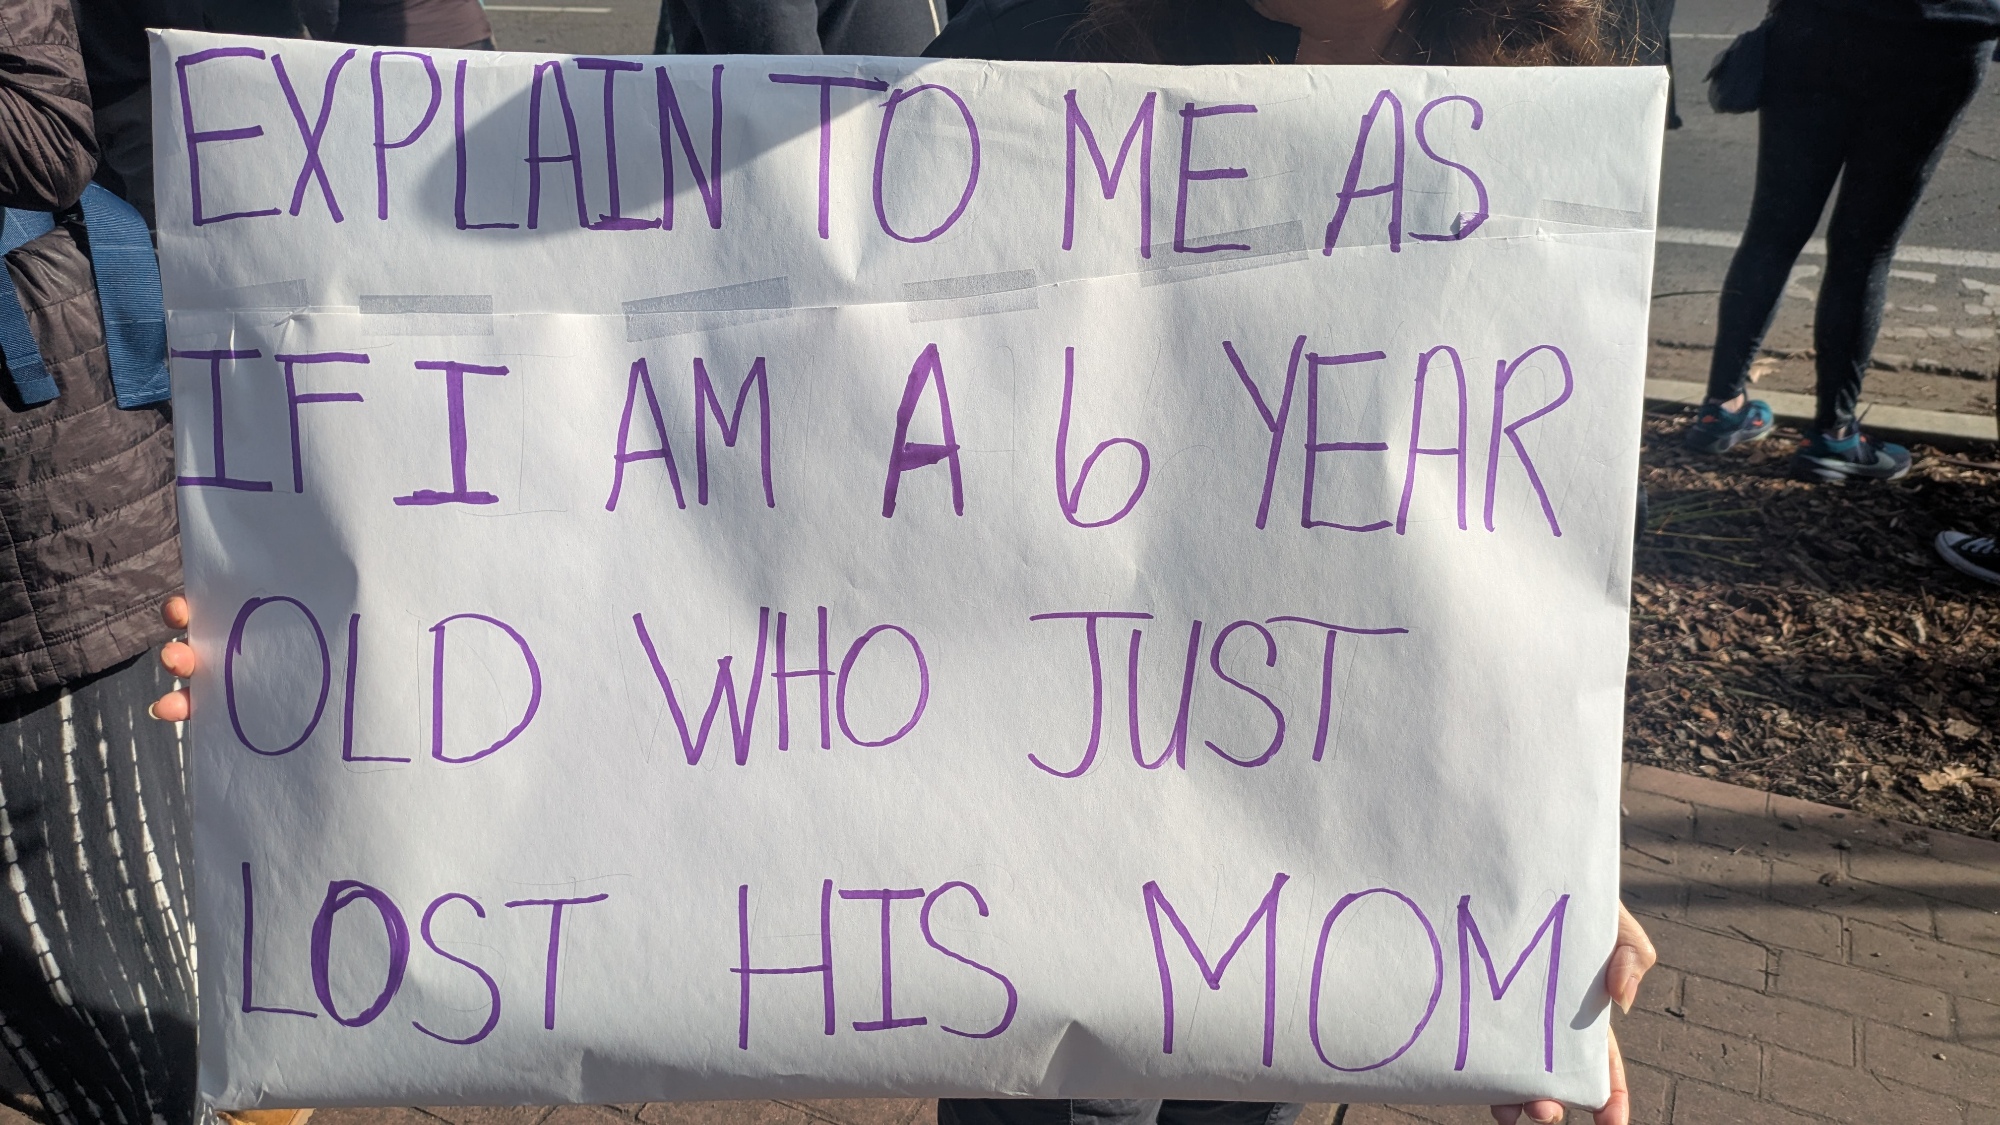 EXPLAIN TO ME AS
IF I AM A 6 YEAR
OLD WHO JUST
LOST HIS MOM